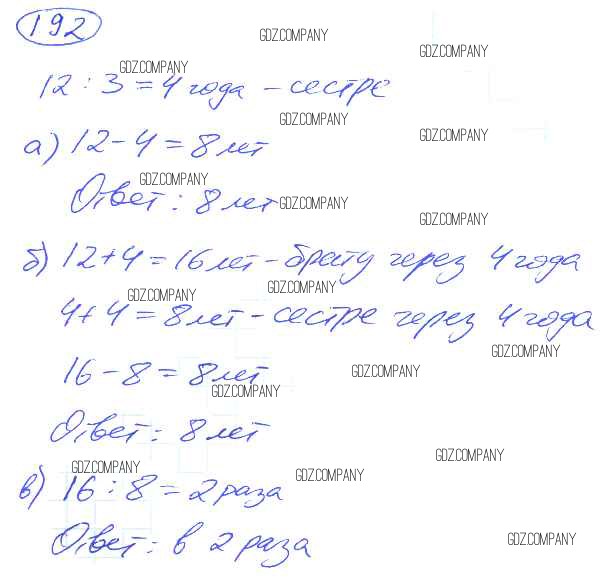 192
GDZ.COMPANY
GDZ.COMPANY
GDZ.COMPANY
12 : 3 = 4 года - сестре
GDZ.COMPANY
GDZ.COMPANY
а) 12 - 4 = 8 лет
GDZ.COMPANY
Ответ : 8 лет
GDZ.COMPANY
GDZ.COMPANY
б) 12 + 4 = 16 лет - брату через 4 года
GDZ.COMPANY
GDZ.COMPANY
4 + 4 = 8 лет - сестре через 4 года
GDZ.COMPANY
16 - 8 = 8 лет
GDZ.COMPANY
GDZ.COMPANY
Ответ : 8 лет
GDZ.COMPANY
GDZ.COMPANY
GDZ.COMPANY
в) 16 : 8 = 2 раза
Ответ : в 2 раза
GDZ.COMPANY